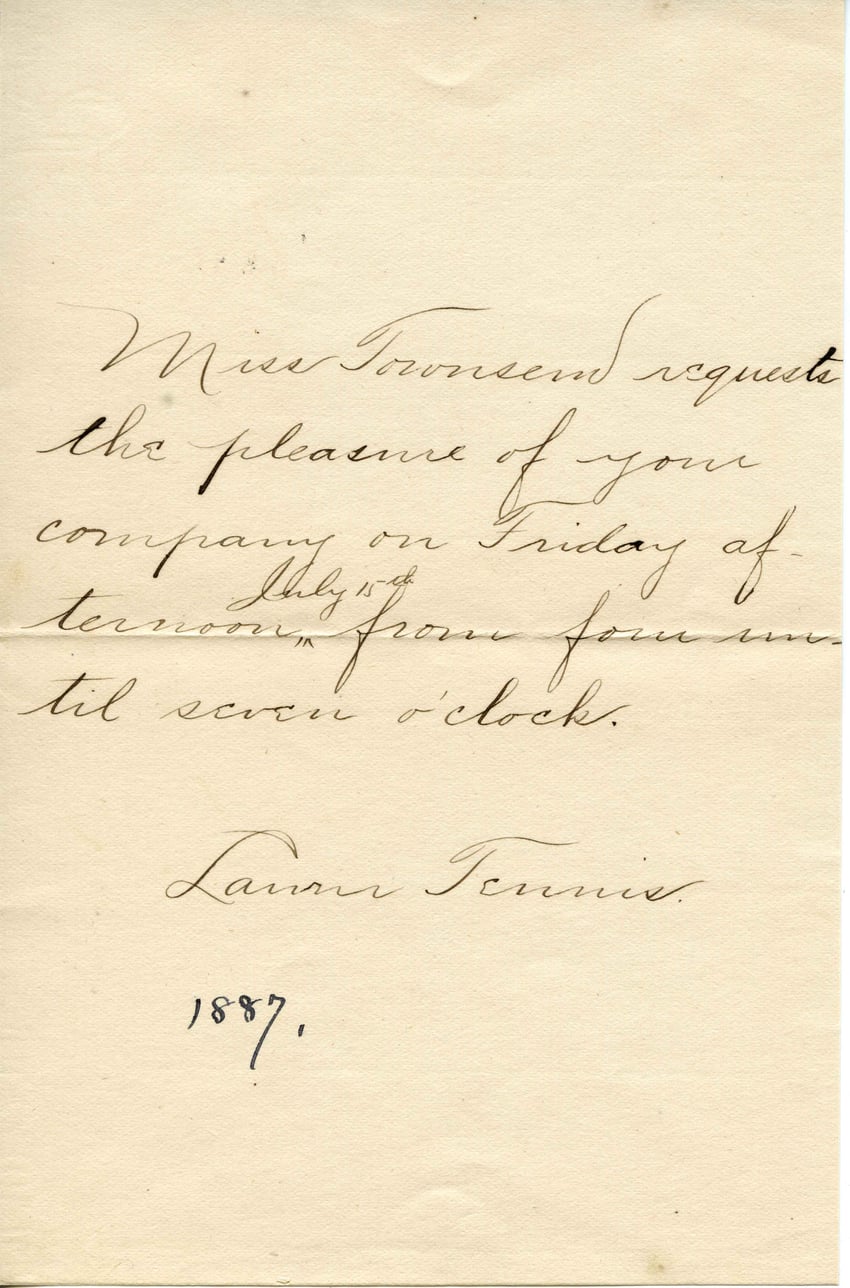 Miss Townsend requests
the pleasure of your
company on Friday af-
July 15th
ternoon, from four un-
til seven o'clock.
Lawn Tennis.
1887.